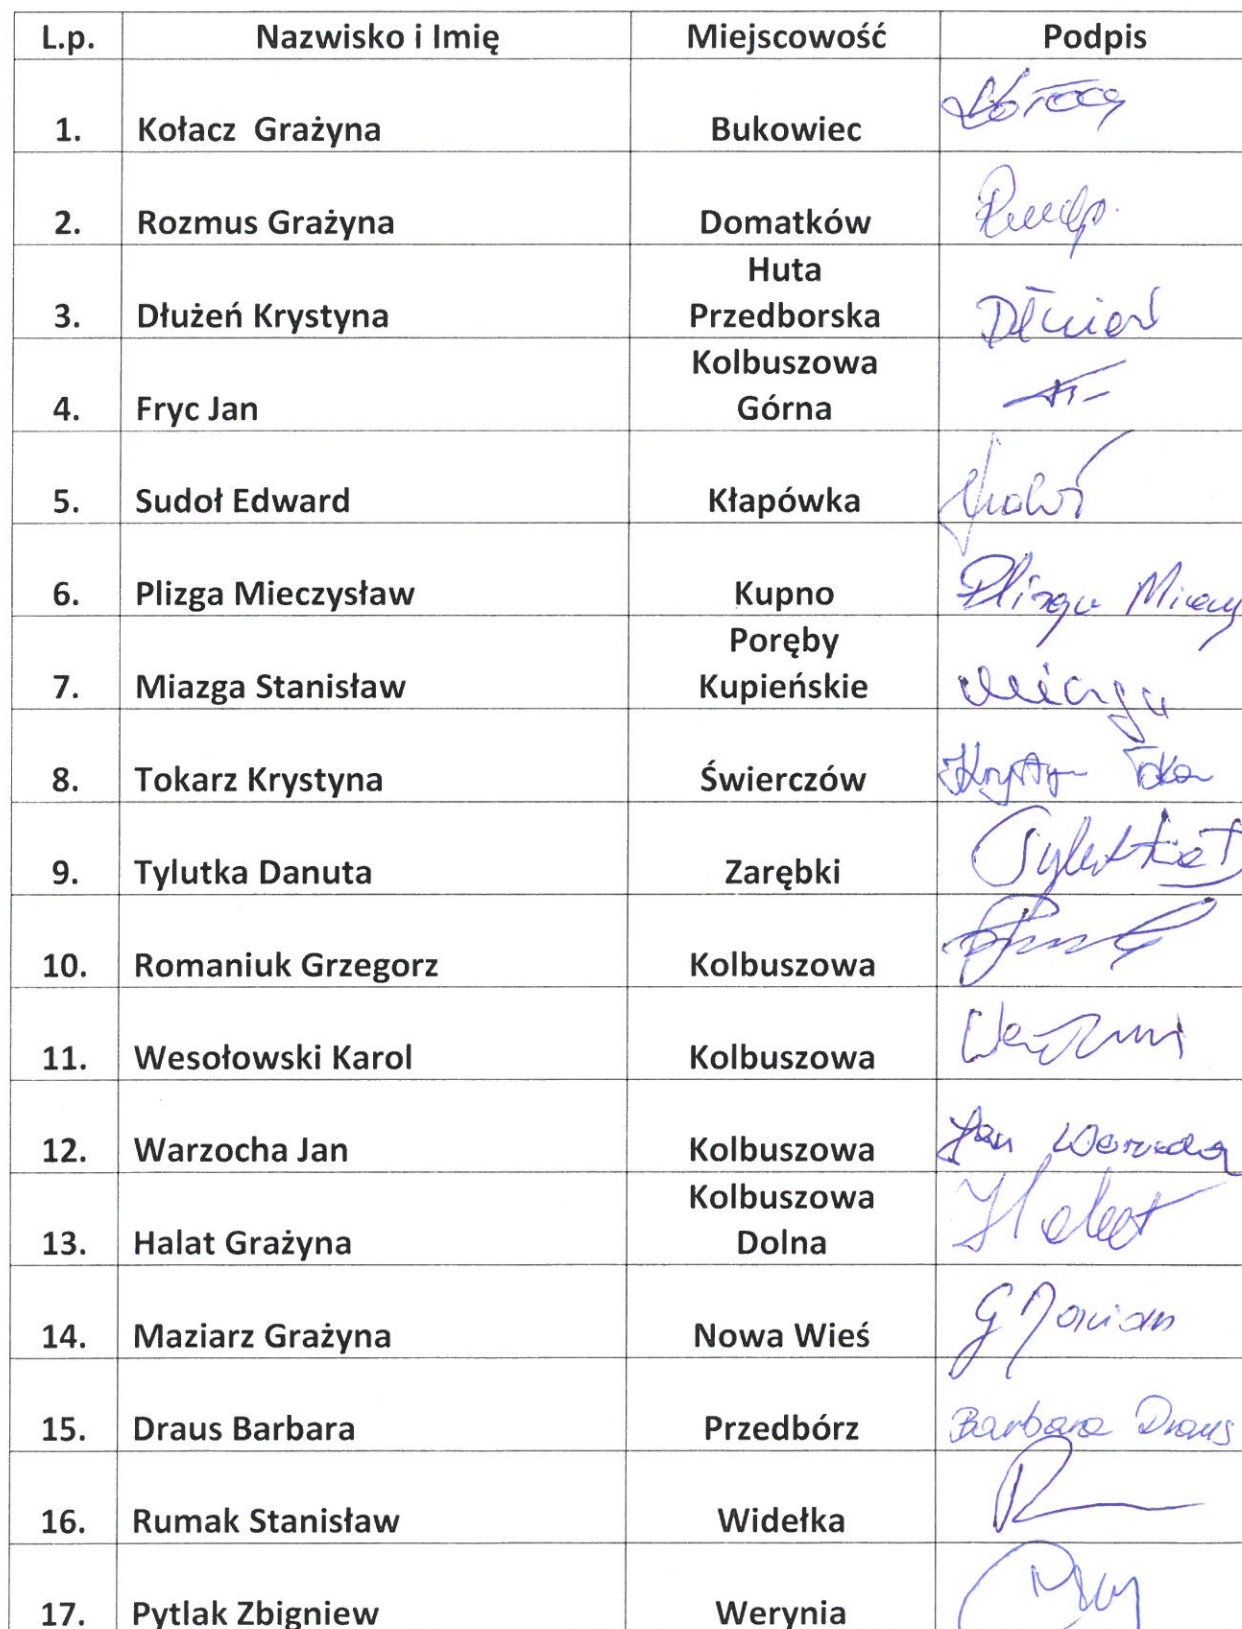 L.p. Nazwisko i Imię Miejscowość Podpis
1. Kołacz Grażyna Bukowiec
2. Rozmus Grażyna Domatków
3. Dłużeń Krystyna Huta Przedborska
4. Fryc Jan Kolbuszowa Górna
5. Sudoł Edward Kłapówka
6. Plizga Mieczysław Kupno Plizga
7. Miazga Stanisław Poręby Kupieńskie
8. Tokarz Krystyna Świerczów
9. Tylutka Danuta Zarębki
10. Romaniuk Grzegorz Kolbuszowa
11. Wesołowski Karol Kolbuszowa
12. Warzocha Jan Kolbuszowa Jan
13. Halat Grażyna Kolbuszowa Dolna Halat
14. Maziarz Grażyna Nowa Wieś
15. Draus Barbara Przedbórz Barbara Draus
16. Rumak Stanisław Widełka
17. Pytlak Zbigniew Werynia